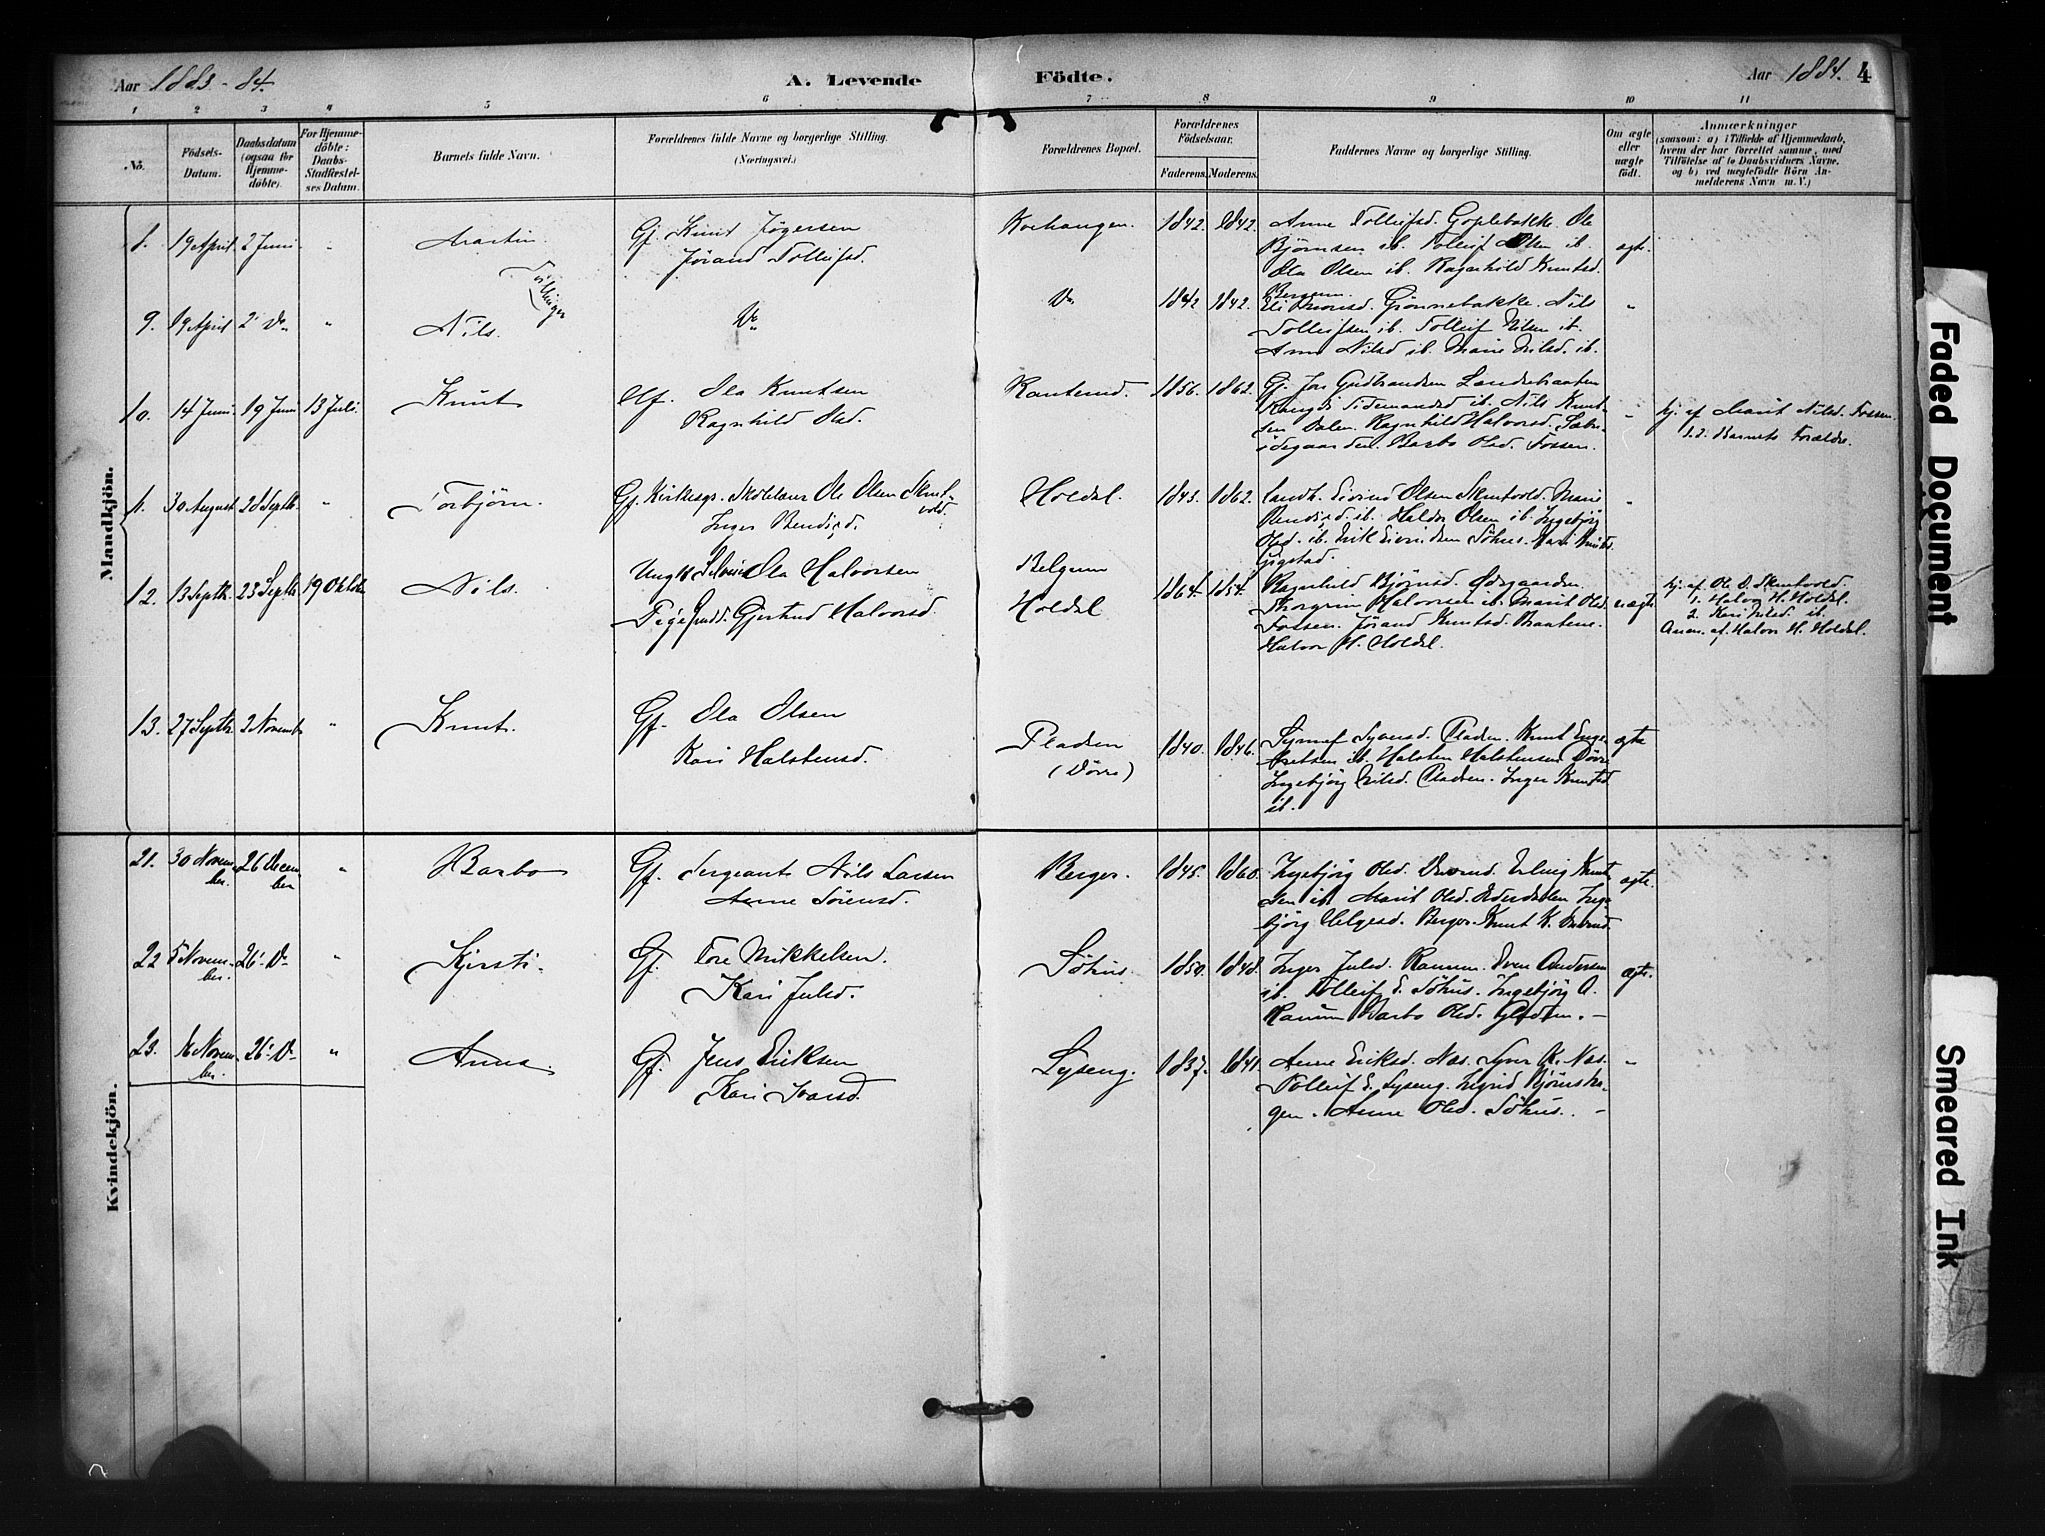 Aar 1883-84.
A. Levende
Födte.
Aar 1884. 4
1 2 3 4 5 6 7 8 9 10 11
Nö.
Födsels-Datum.
Daabsdatum (ogsaa for Hjemmedöbte).
For Hjemmedöbte: Daabs-Stadfæstelses Datum.
Barnets fulde Navn.
Forældrenes fulde Navne og borgerlige Stilling.
(Næringsvei.)
Forældrenes Bopæl.
Forældrenes Födselsaar.
Faderens. Moderens.
Faddernes Navne og borgerlige Stilling.
Om ægte eller uægte födt.
Anmærkninger
(saasom: a) i Tilfælde af Hjemmedaab,
hvem der har forrettet samme, med
Tilföielse af to Daabsvidners Navne,
og b) ved uægtefödte Börn An-
melderens Navn m. V.)
Mandkjön.
8. 19 April 2 Juni " Martin Gj. Knut Jögersen
Jörand Tolleifsd.
1842. 1842. Anne Tolleifsd. Goplebakke. Ole
Björnsen ib. Tolleif Olsen ib.
Ola Olsen ib. Ragnhild Knutsd.
Bergum.
ægte.
Tvillinger
9. 19 April 2' Do " Nils. Do Do 1842 1842. Gjönnebakke. Nils
Tolleifsen ib. Tolleif Nilsen ib.
Anne Nilsd ib. Marie Nilsd. ib.
"
10. 14 Juni. 19 Juni 13 Juli. Knut Gf. Ola Knutsen
Ragnhild Olsd.
1856. 1862. Gj. Jon Gudbrandsen
ib. Nils Knut-
sen Dalen. Ragnhild Halvorsd.
Barbo Olsd. Fossen.
"
hj. af Marit Nilsd. Fossen
Barnets Forældre.
11. 30 August 28 Septb. " Torbjörn. Gj. Kirkesgr. Skolelærer Ole Olsen Skrut-
vold.
Inger
Holdal. 1843. 1862. Landh. Eivind Olsen Skrutvold. Marie
ib. Haldor Olsen ib. Ingebjörg
Olsd. ib. Erik Eivindsen Söhus. Mari Knutsd.
Gigstad.
"
12. 13 Septb. 23 Septb. 19 Oktober Nils. Ungk. Ola Halvorsen
Pige Gjertrud Halvorsd.
Belgum
Holdal
1864. 1854. Ragnhild Björnsd. Ödegaarden.
Thorgrim Halvorsen ib. Marit Olsd.
Fossen. Jörand Knutsd.
Halvor H. Holdal.
uægte
hj. af Ole O. Skrutvold.
1. Halvor H. Holdal.
2. Kari Nilsd. ib.
Anm. af Halvor H. Holdal.
13. 27 Septb. 2 Novemb " Knut. Gf. Ola Olsen
Kari Halstensd.
Pladsen
(Dövre)
1840. 1846. Pladsen. Knut Enge-
bretsen ib. Halsten Halstensen Dövre
Ingebjörg Nilsd. Pladsen. Inger Knutsd
ib.
ægte
Kvindekjön.
21. 30 Novem-
ber. 26 Decem-
ber " Barbo Gf. Sergeant Nils Larsen
Anne Sörensd.
Berger. 1845. 1860. Ingebjörg Olsd. Erling Knut-
sen ib. Marit Olsd. Inge-
björg Helgesd. Berger. Knut K.
ægte.
22 5 Novem-
ber. 26' Do " Kjersti. Gf. Tore Mikkelsen.
Kari Julsd.
Söhus 1850. 1848. Inger Julsd. Ranum. Even Andersen
ib. Tolleif E. Söhus. Ingebjörg A.
Ranum Barbo Olsd.
ægte.
23. 16 Novem-
ber. 26' Do " Anna. Gf. Jens Eriksen
Kari Ivarsd.
Lyseng. 1837. 1841. Anne Eriksd. Næs. Iver K. Næs.
Tolleif E. Lyseng. Ingrid Björnsha-
gen. Anne Olsd. Söhus.
"
Faded Document
Smeared Ink